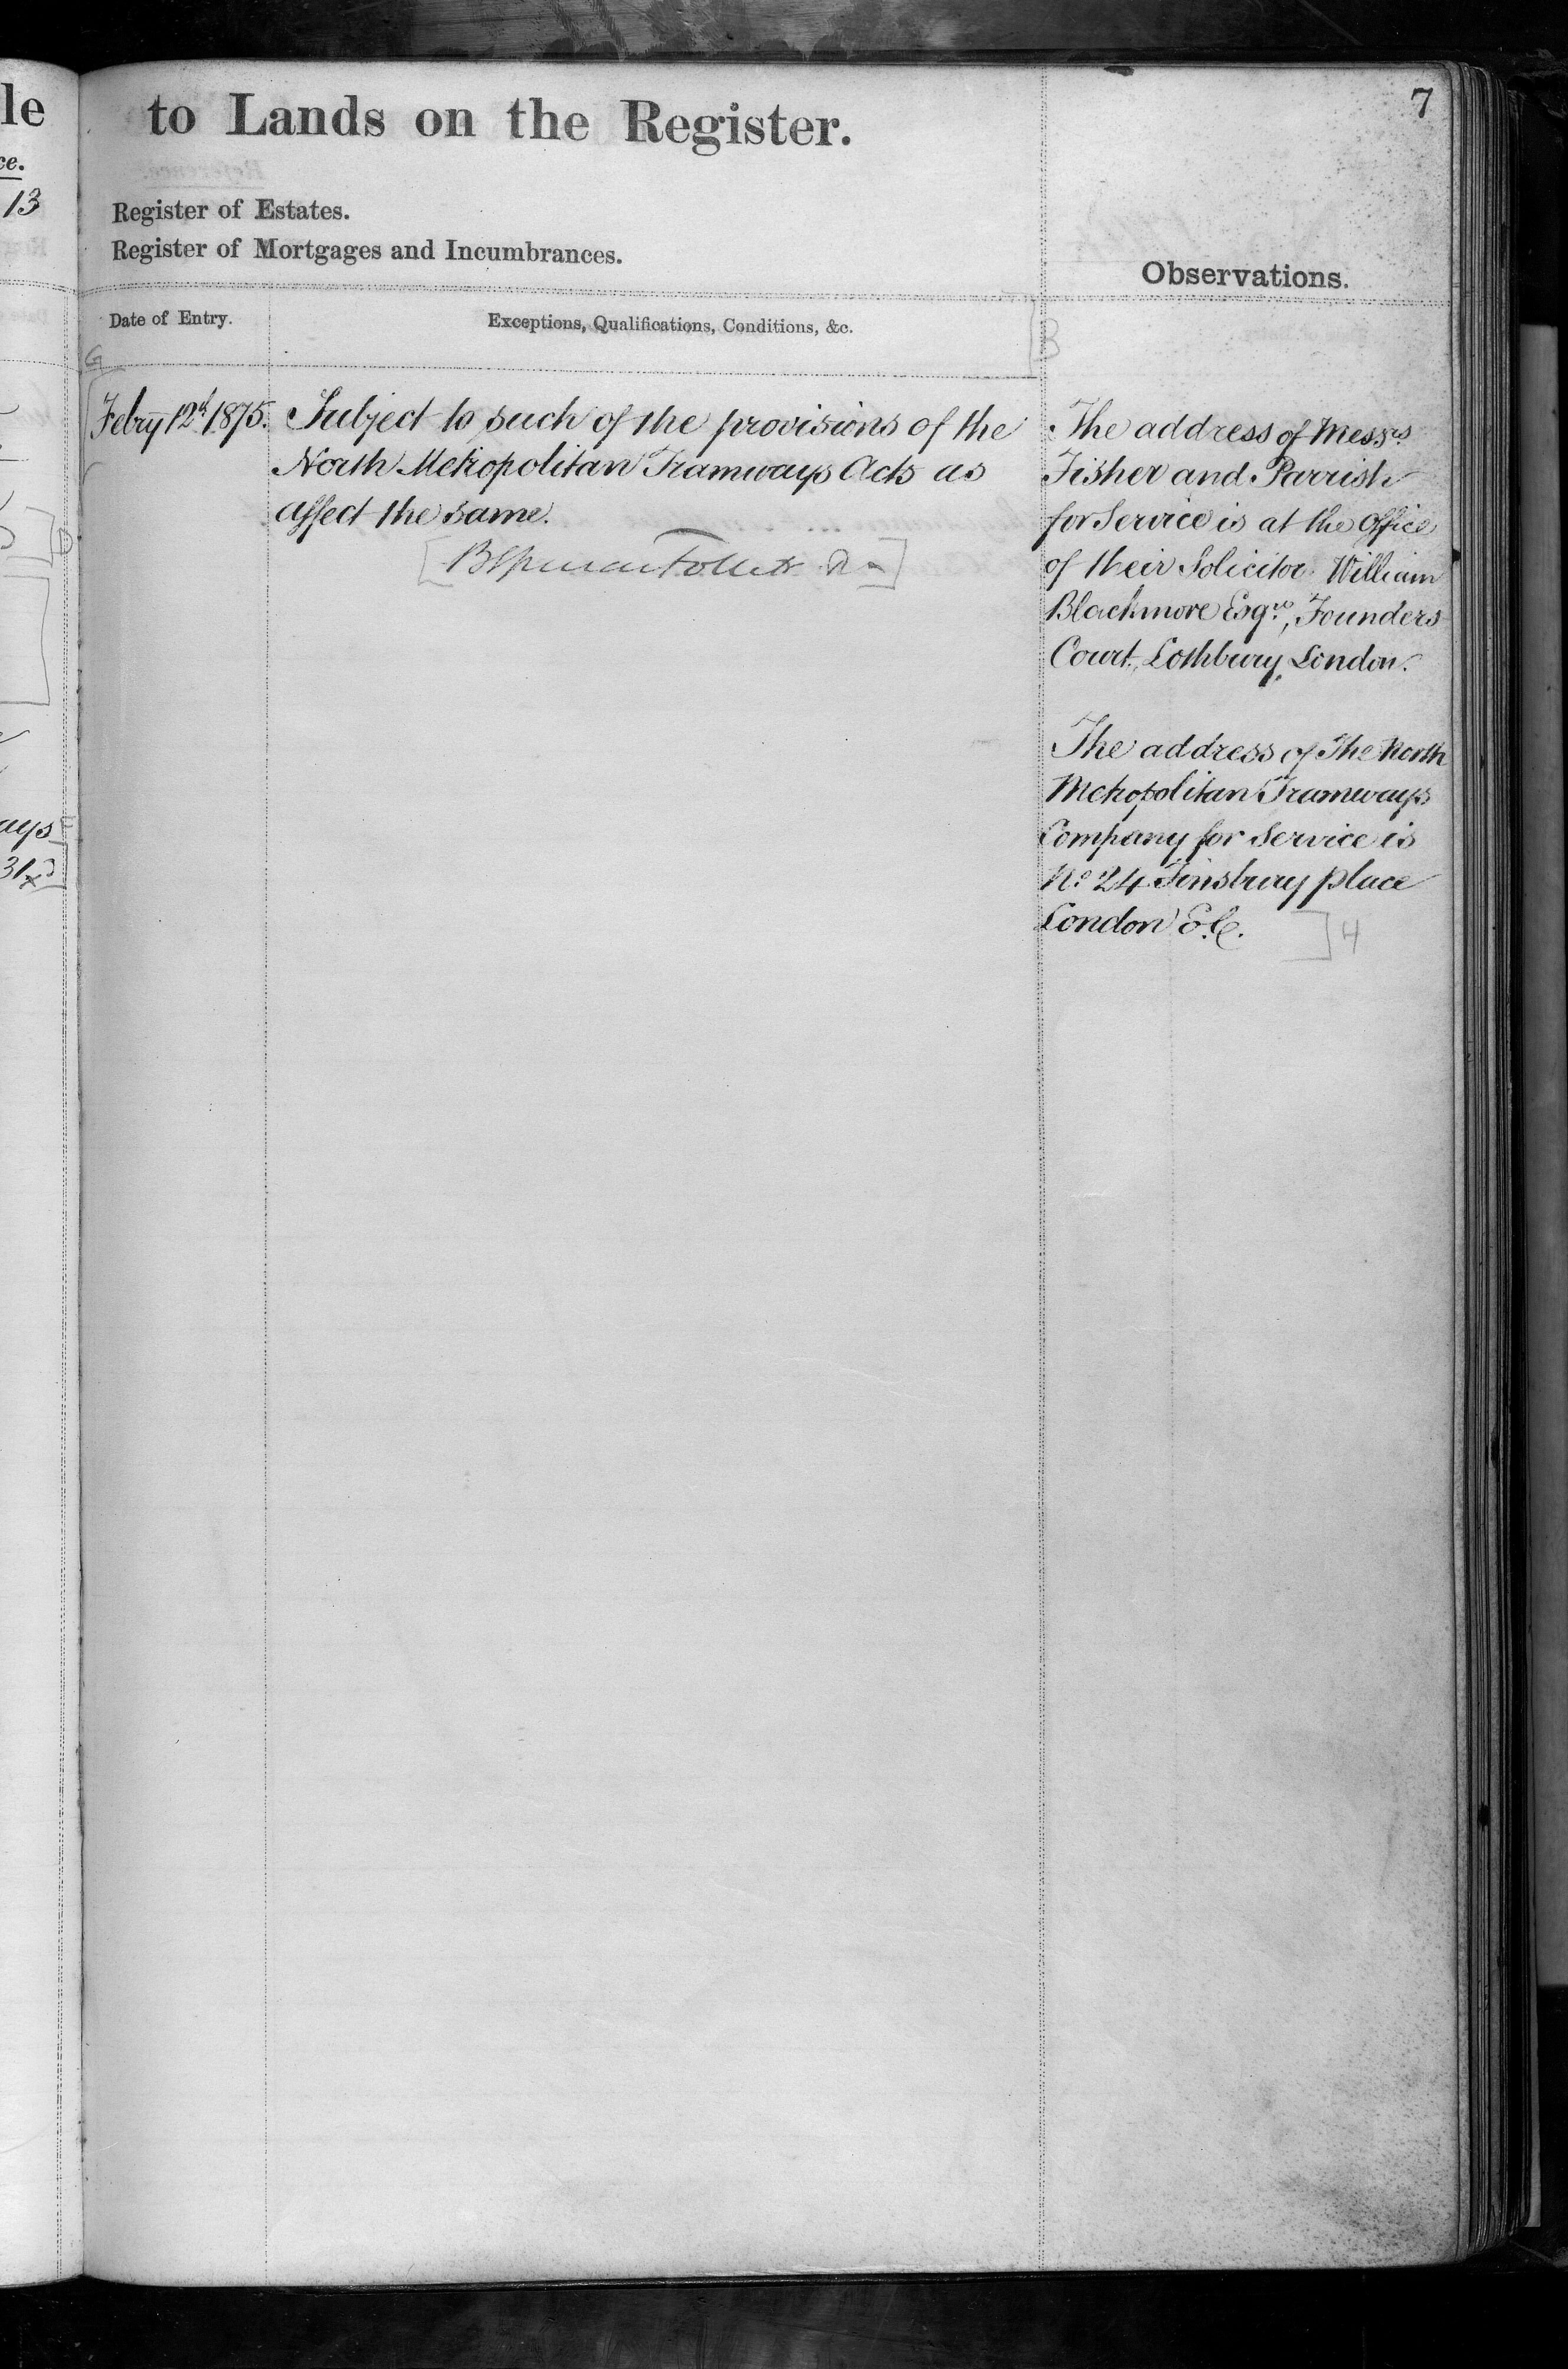 le
ce.
13
ays
31
7
to Lands on the Register.
Register of Estates.
Register of Mortgages and Incumbrances.
Observations.
Date of Entry.
Exceptions, Qualifications, Conditions, &c.
B
G
Febry 12th 1875.
Subject to such of the provisions of the
North Metropolitan Tramways Acts as
affect the same.
The address of Messrs
Fisher and Parrish
for Service is at the Office
of their Solicitor William
Blackmore Esqre, Founders
Court, Lothbury, London.
The address of The North
Metropolitan Tramways
Company for Service is
No 24 Finsbury place
London E.C.
H